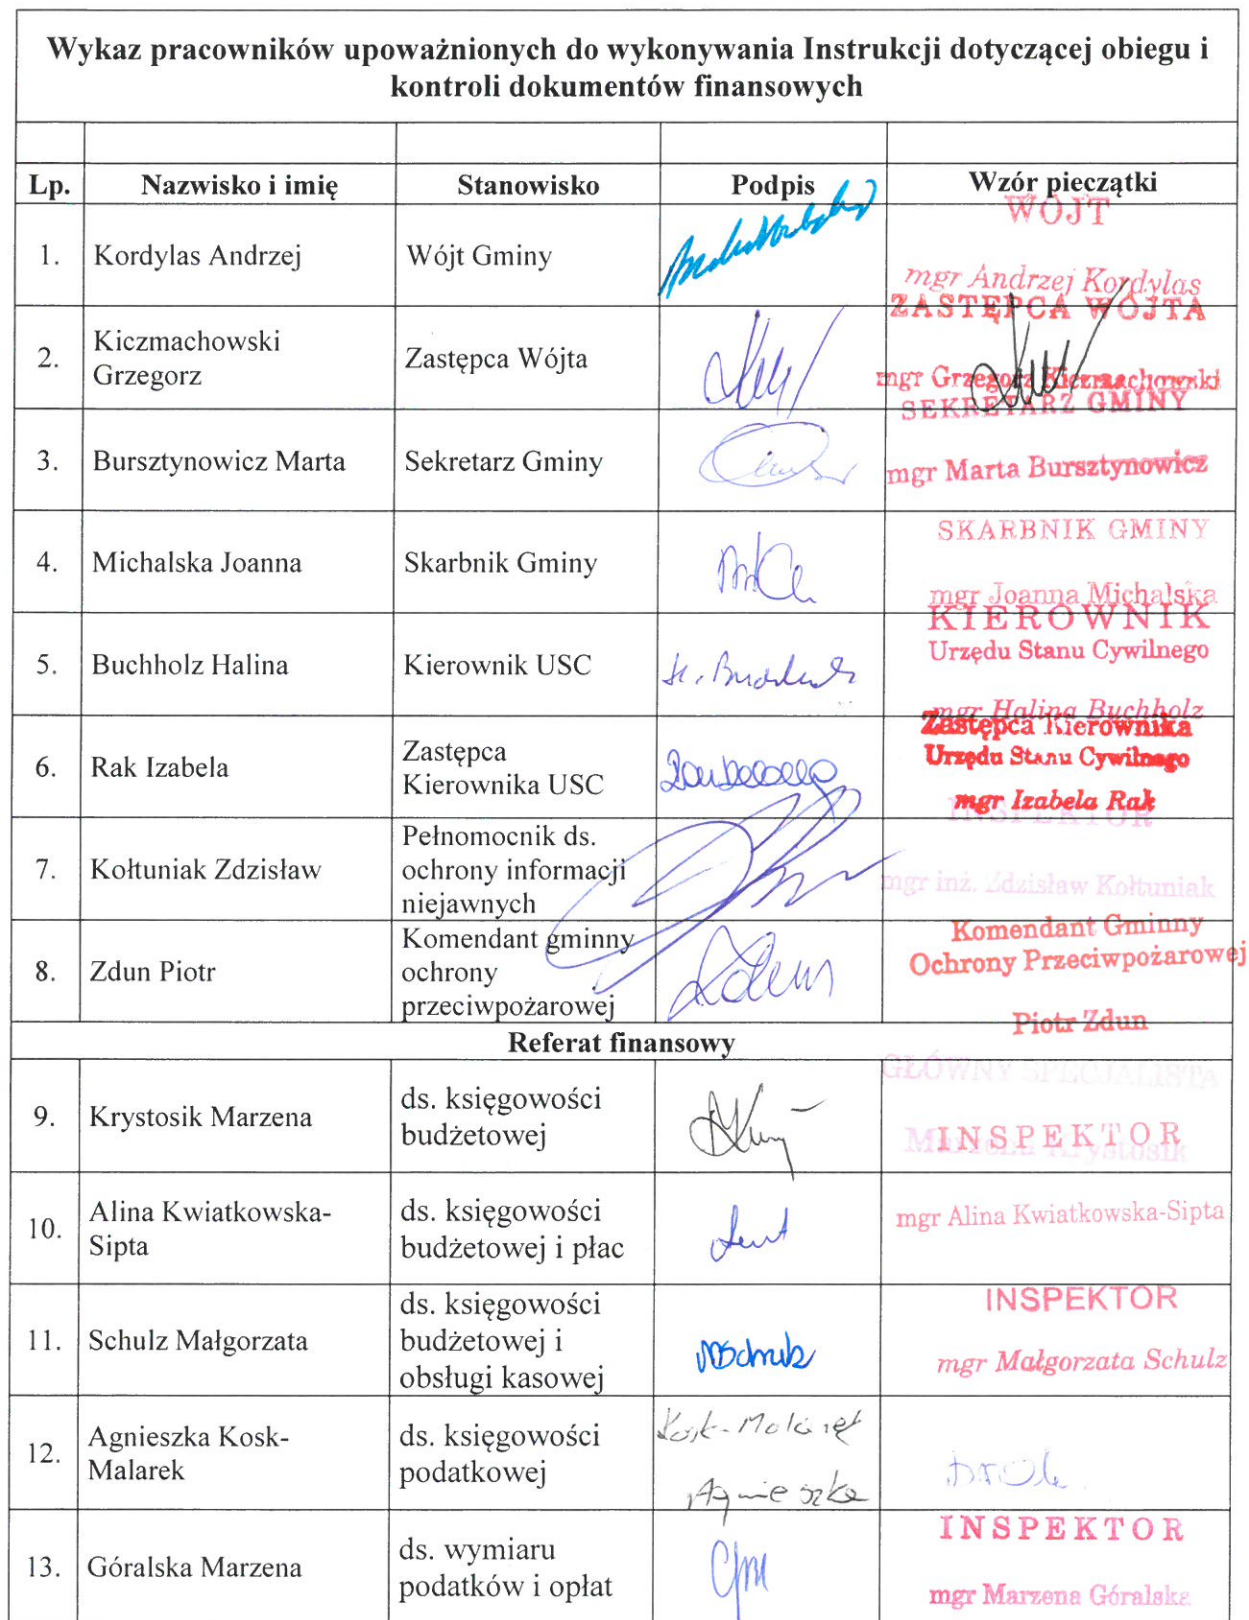 Wykaz pracowników upoważnionych do wykonywania Instrukcji dotyczącej obiegu i
kontroli dokumentów finansowych
Lp. Nazwisko i imię Stanowisko Podpis Wzór pieczątki
1. Kordylas Andrzej Wójt Gminy
WÓJT
mgr Andrzej Kordylas
2. Kiczmachowski
Grzegorz
Zastępca Wójta
ZASTĘPCA WÓJTA
mgr Grzegorz Kiczmachowski
3. Bursztynowicz Marta Sekretarz Gminy
SEKRETARZ GMINY
mgr Marta Bursztynowicz
4. Michalska Joanna Skarbnik Gminy
SKARBNIK GMINY
mgr Joanna Michalska
5. Buchholz Halina Kierownik USC
KIEROWNIK
Urzędu Stanu Cywilnego
mgr Halina Buchholz
6. Rak Izabela
Zastępca
Kierownika USC
Zastępca Kierownika
Urzędu Stanu Cywilnego
mgr Izabela Rak
7. Kołtuniak Zdzisław
Pełnomocnik ds.
ochrony informacji
niejawnych
INSPEKTOR
mgr inż. Zdzisław Kołtuniak
8. Zdun Piotr
Komendant gminny
ochrony
przeciwpożarowej
Komendant Gminny
Ochrony Przeciwpożarowej
Piotr Zdun
Referat finansowy
9. Krystosik Marzena
ds. księgowości
budżetowej
GŁÓWNY SPECJALISTA
Marzena Krystosik
10. Alina Kwiatkowska-
Sipta
ds. księgowości
budżetowej i płac
INSPEKTOR
mgr Alina Kwiatkowska-Sipta
11. Schulz Małgorzata
ds. księgowości
budżetowej i
obsługi kasowej
MSchulz
INSPEKTOR
mgr Małgorzata Schulz
12. Agnieszka Kosk-
Malarek
ds. księgowości
podatkowej
Kosk-Malarek
Agnieszka
BRAK
13. Góralska Marzena
ds. wymiaru
podatków i opłat
INSPEKTOR
mgr Marzena Góralska